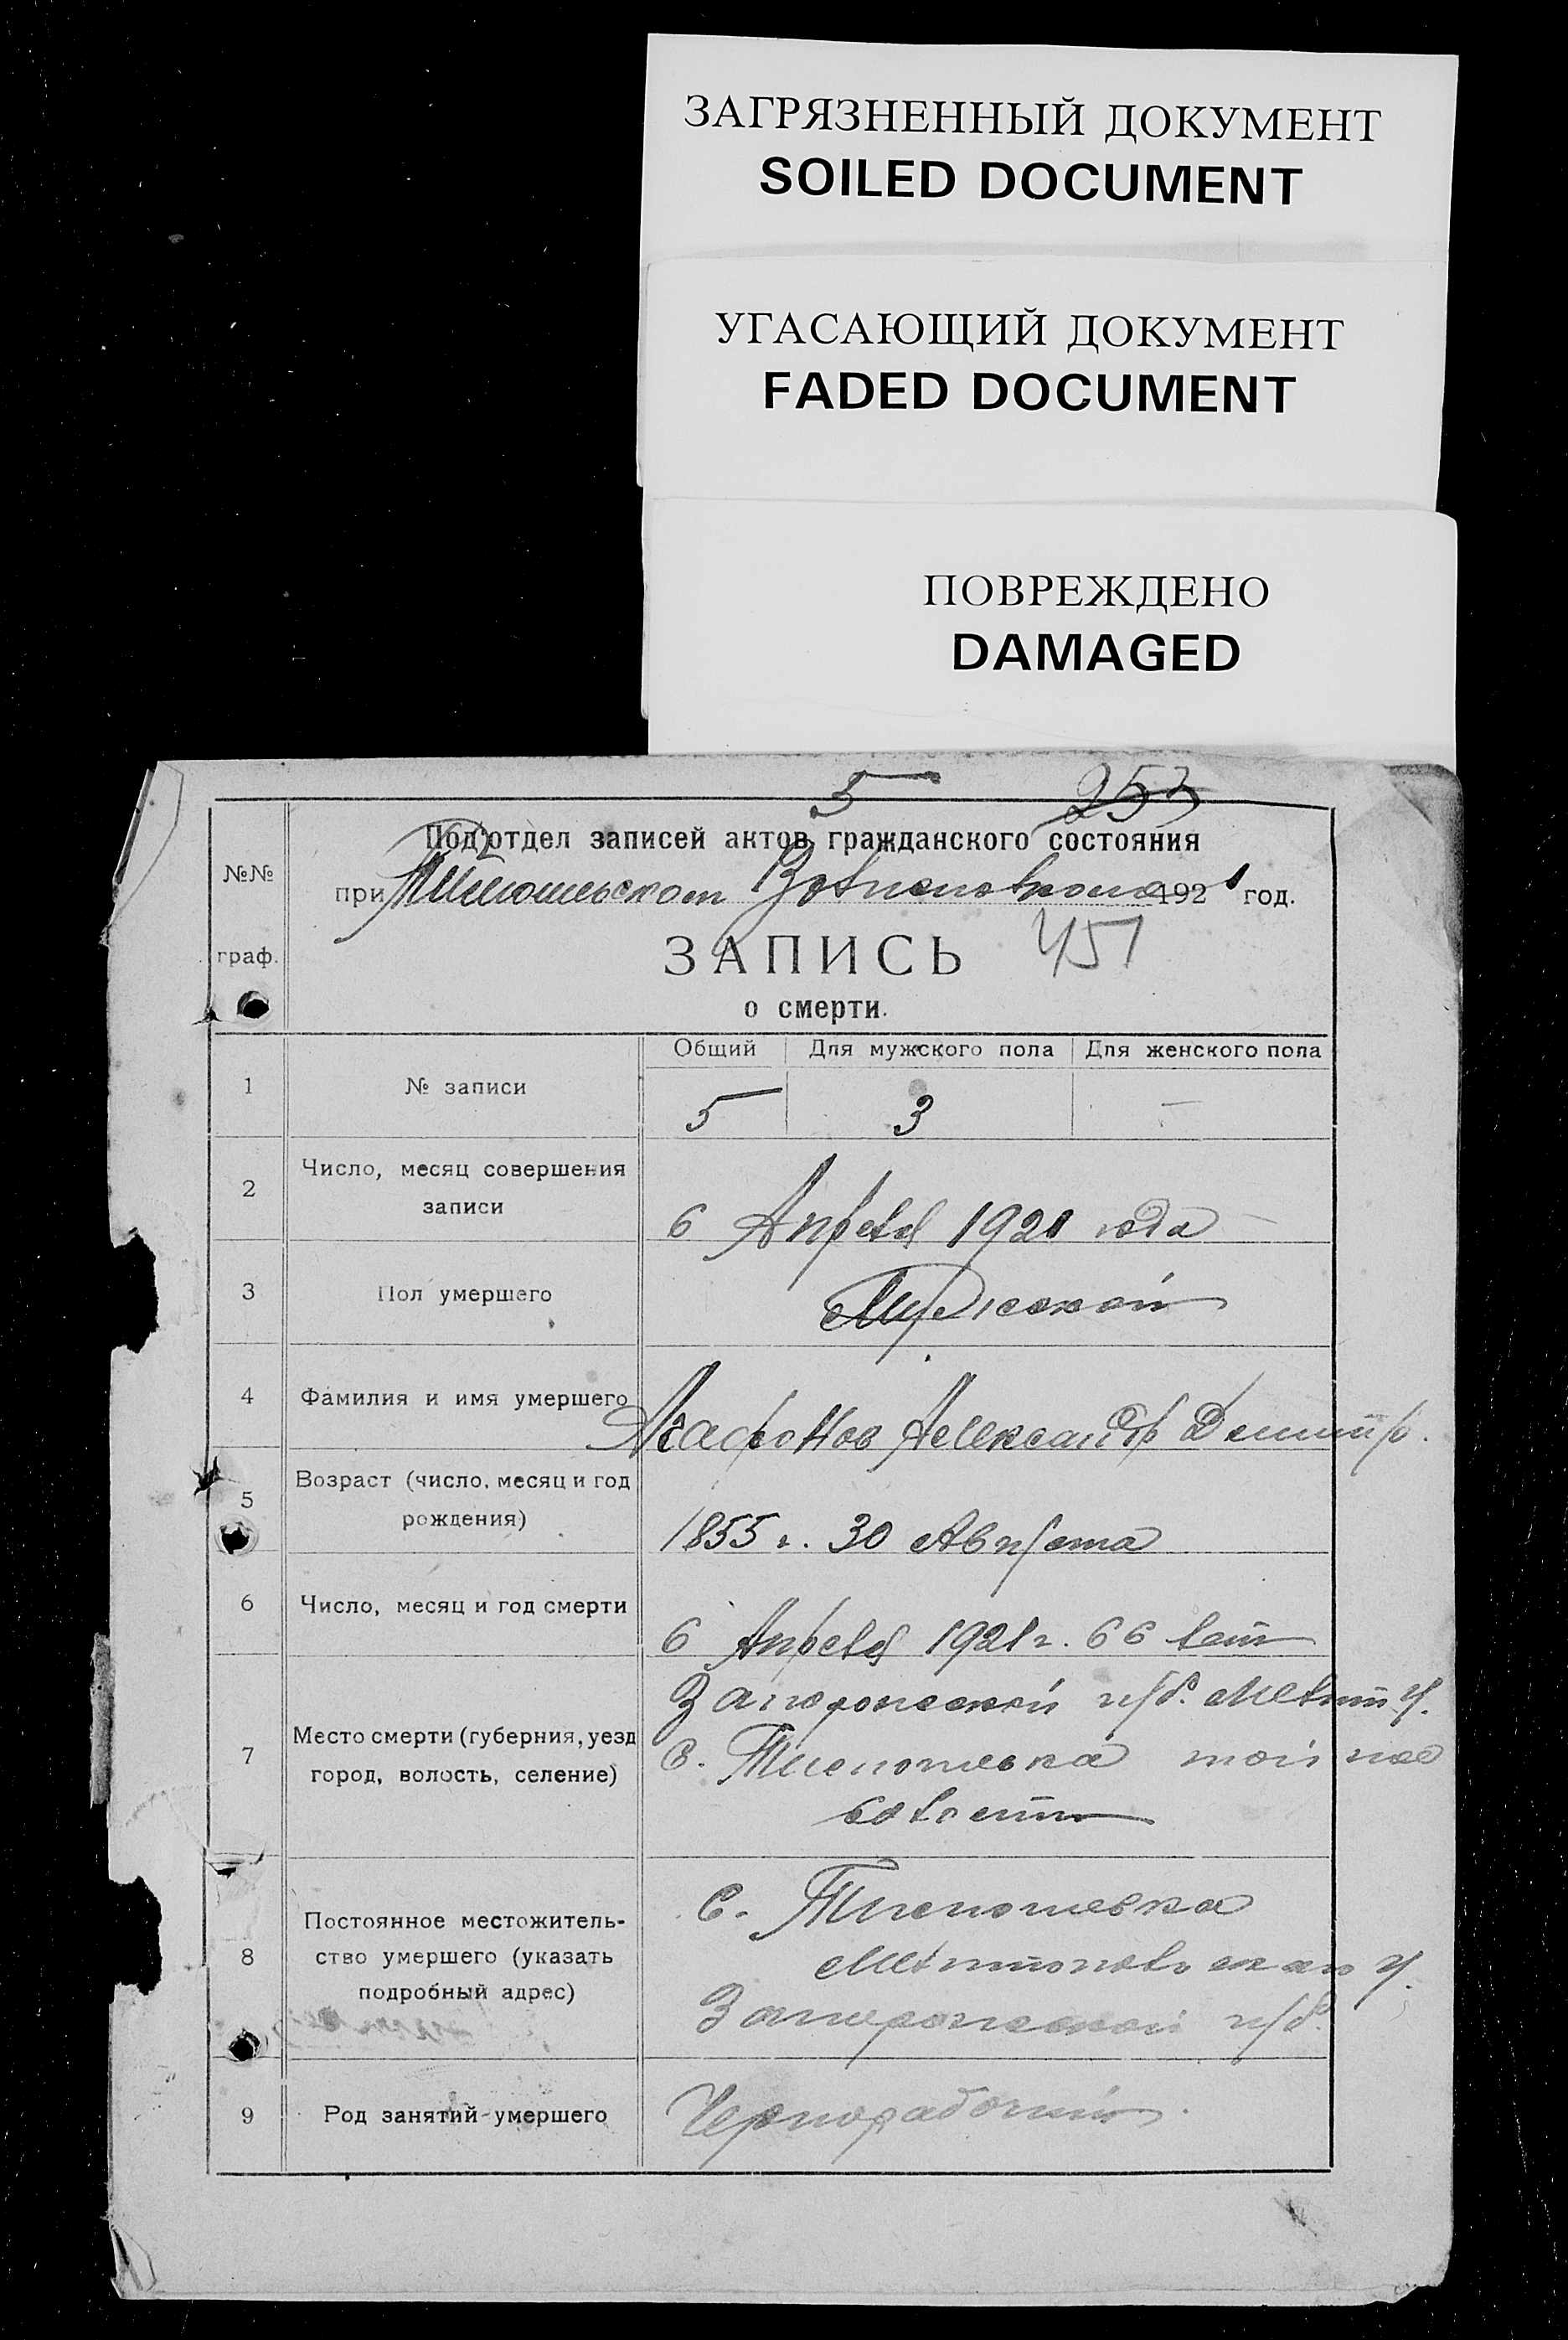 ЗАГРЯЗНЕННЫЙ ДОКУМЕНТ
SOILED DOCUMENT
УГАСАЮЩИЙ ДОКУМЕНТ
FADED DOCUMENT
ПОВРЕЖДЕНО
DAMAGED
5 253
№№ граф.
Подотдел записей актов гражданского состояния
при 1921 год.
ЗАПИСЬ 451
о смерти.
Общий Для мужского пола Для женского пола
1 № записи 5 3 —
2 Число, месяц совершения
записи
6 Апреля 1921 года
3 Пол умершего Мужской
4 Фамилия и имя умершего Агафонов Александр Дмитр.
5 Возраст (число, месяц и год
рождения)
1855 г. 30 Августа
6 Число, месяц и год смерти 6 Апреля 1921 г. 66 лет
7 Место смерти (губерния, уезд
город, волость, селение)
Запорожской губ. Мелит у.
С. той же
волости
8 Постоянное местожитель-
ство умершего (указать
подробный адрес)
С.
Мелитопольского у.
Запорожской губ.
9 Род занятий умершего Чернорабочий.